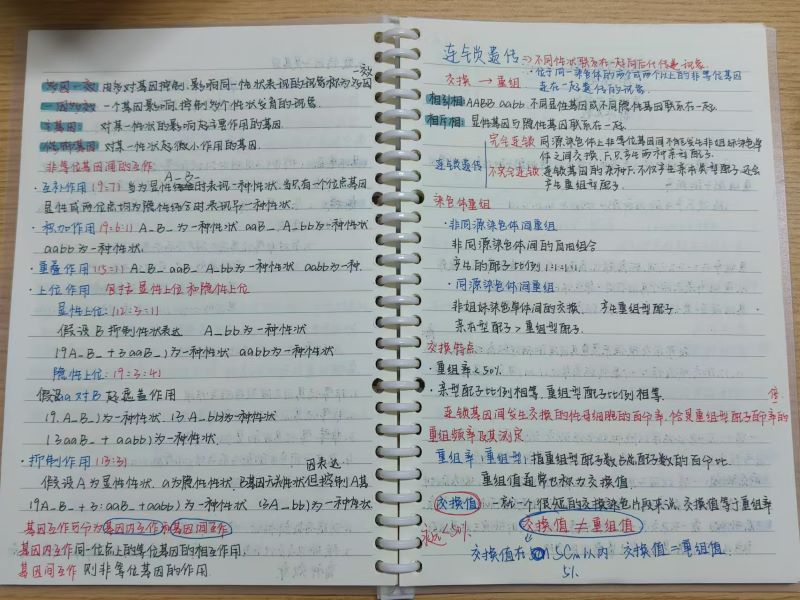 一效
多因一效 由多对基因控制、影响同一性状表现的现象称为多因
一因多效 一个基因影响、控制多个性状发育的现象.
主基因 对某一性状的影响起主要作用的基因.
微效基因 对某一性状起微小作用的基因.
非等位基因间的互作
A_B_
·互补作用(9:7) 当为显性时表现一种性状.当只有一个位点基因
显性或两位点均为隐性纯合时表现另一种性状.
·积加作用(9:6:1) A_B_为一种性状 aaB_ A_bb为一种性状
aabb为一种性状.
·重叠作用(15:1) A_B_ aaB_ A_bb为一种性状 aabb为一种.
·上位作用 包括显性上位和隐性上位
显性上位:(12:3:1)
假设B抑制性状表达 A_bb为一种性状
(9A_B_+3aaB_)为一种性状 aabb为一种性状
隐性上位:(9:3:4)
假设a对B起遮盖作用
(9A_B_)为一种性状 (3A_bb)为一种性状
(3aaB_+aabb)为一种性状.
·抑制作用(13:3)
因表达
假设A为显性性状.a为隐性性状.B基因无性状但抑制A基
(9A_B_+3aaB_+aabb)为一种性状 (3A_bb)为一种性状
基因互作可分为基因内互作和基因间互作
基因内互作同一位点上的等位基因的相互作用.
基因间互作则非等位基因的作用.
连锁遗传→不同性状联系在一起向后代传递现象
交换→重组 ·位于同一染色体的两个或两个以上的非等位基因
连在一起遗传的现象.
相引相:AABB aabb 不同显性基因或不同隐性基因联系在一起.
相斥相:显性基因与隐性基因联系在一起.
完全连锁 同源染色体上非等位基因间不能发生非姐妹染色单
体之间交换.只形成两种亲型配子.
连锁遗传
不完全连锁 连锁基因的杂种F1不仅产生亲本类型配子还会
产生重组型配子.
染色体重组
·非同源染色体间重组
非同源染色体间的自由组合
产生的配子比例1:1:1:1
·同源染色体间重组
非姐妹染色单体间的交换. 产生重组型配子.
亲本型配子>重组型配子.
交换特点
·重组率<50%
·亲型配子比例相等.重组型配子比例相等.
倍
连锁基因间发生交换的性母细胞的百分率.恰是重组型配子百分率的
重组频率及其测定
重组率(重组型):指重组型配子数占总配子数的百分比.
重组值通常也称为交换值.
交换值 一就一个很短的交换染色片段来说.交换值等于重组率
交换值≠重组值
交换值在5cm以内 交换值=重组值.
5%